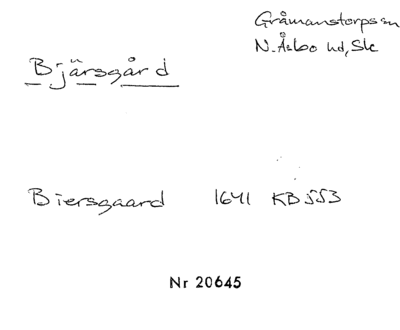 Gråmanstorps sn
N. Åsbo hd, Sk
Bjärsgård
Biersgaard 1641 KB 553
Nr 20645